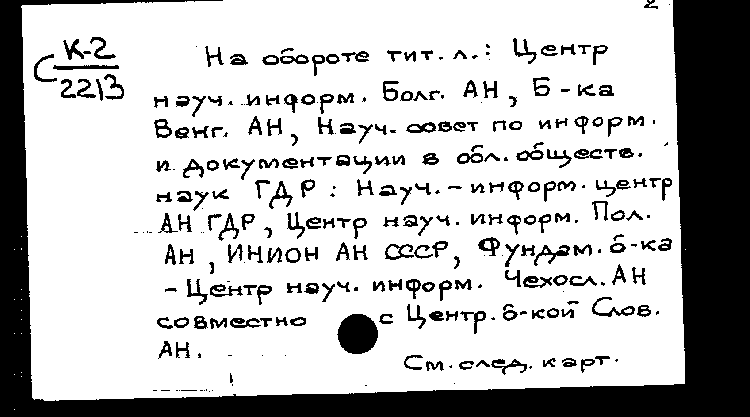 2
С К-2
2213
На обороте тит. л.: Центр
науч. информ. Болг. АН, Б-ка
Венг. АН, Науч. совет по информ.
и документации в обл. обществ.
наук ГДР : Науч.-информ. центр
АН ГДР, Центр науч. информ. Пол.
АН, ИНИОН АН СССР, Фундам. б-ка
- Центр науч. информ. Чехосл. АН
совместно с Центр. б-кой Слов.
АН.
См. след. карт.